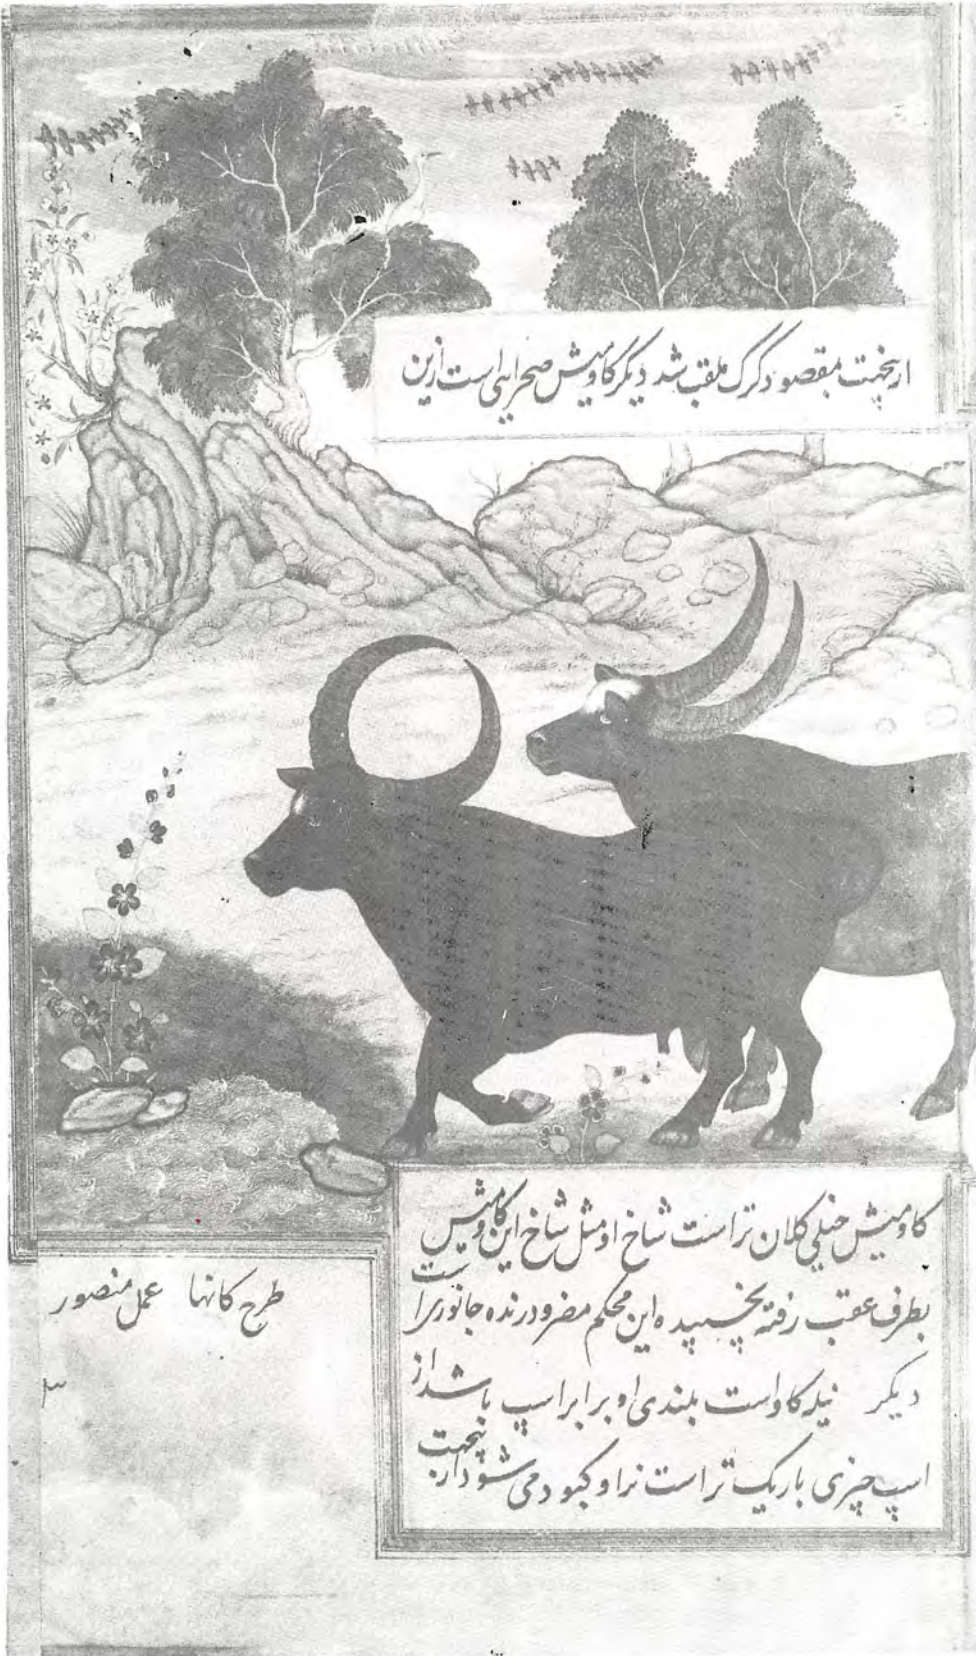 ازینجهت بمقصود کرک ملقب شد دیگر کاومیش صحرایی است ازین
کاومیش خیلی کلان تر است شاخ او مثل شاخ این کاومیش
بطرف عقب رفته بچسپیده این محکم مضر و درنده جانوری است
دیگر نیله کاو است بلندی او برابر اسپ باشد از
اسپ چیزی باریک تر است نر او کبود می شود ازینجهت
طرح کانها عمل منصور